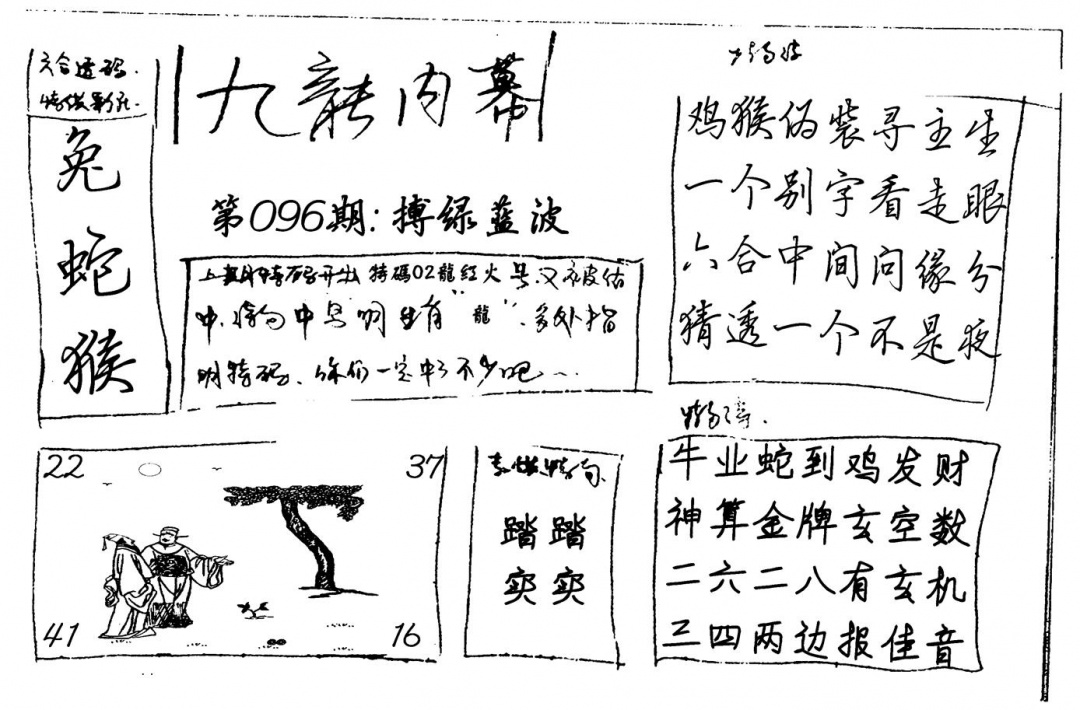 六合透码
九龍内幕
兔
蛇
猴
第096期:搏绿蓝波
上期特码开出特碼02龍红火号又被估
中,特句中早明生肖“龍”,多处指
明特码、你们一定中了不少吧
鸡猴伪装寻主生
一个别字看走眼
六合中间问缘分
猜透一个不是夜
22
37
41
16
踏踏
实实
牛业蛇到鸡发财
神算金牌玄空数
二六二八有玄机
三四两边报佳音